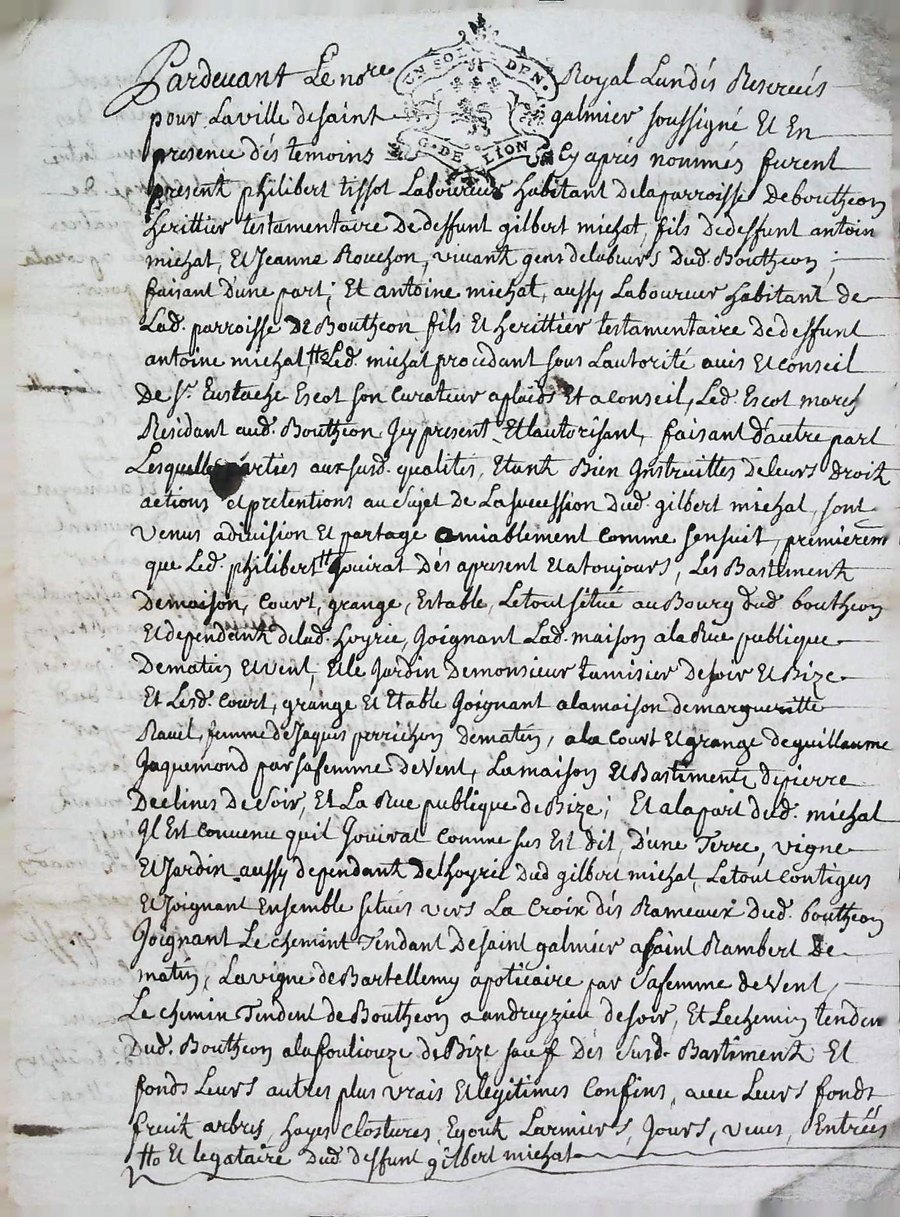 Pardevant Le nore Royal Lundis Reservés
UN SOL DEN.
G. DE LION
pour Laville desaint galmier soussigné Et En
presence dés temoins Cy aprés nommés furent
present philibert tissot Laboureur habitant delaparroisse debouthеon
herittier testamentaire dedeffunt gilbert michat, fils dedeffunt antoin
michat, Et Jeanne Rouchon, vivant gens delabeurs dud. Boutheon ;
faisant d'une part ; Et antoine michat, aussy Laboureur habitant de
Lad. parroisse de Boutheon fils Et herittier testamentaire dedeffunt
antoine michat tto Led. michat procedant sous Lautorité avis Et conseil
De sr. Eustache Escot son Curateur aplaids Et aconseil, Led. Escot march
Residant aud. Boutheon Jcy present Et Lautorisant, faisant d'autre part
Lesquelles parties aux susd. qualites, Etant Bien Jnstruittes deleurs droit
actions et pretentions ausujet de Lasuccession Dud. gilbert michat, sont
venus adivision Et partage amiablement comme sensuit, premierem
que Led. philibert tto Jouirat dés apresent Etatoujours, Les Bastiment
Demaison, Court, grange, Estable, Letout situé auBourg dud. boutheon
Et dependent delad. hoyrie, Joignant Lad. maison alaRue publique
Dematin Et vent, Et le Jardin demonsieur tamisier desoir Et Bize
Et Lesd. Court, grange Et Etable Joignant alamaison demargueritte
Ravel, femme de Jaques perrichon dematin, ala Court Et grange deguillaume
Jaquemond parsafemme deVent, Lamaison Et Bastiments depierre
Declines de soir, Et La Rue publique de Bize ; Et alapart dud. michat
Jl Est convenu quil Jouirat comme sus Est dit, D'une Terre, vigne
Et Jardin aussy dependant de hoyrie Dud gilbert michat, Letout contigus
Et Joignant Ensemble situés vers La Croix dés Rameaux Dud. boutheon
Joignant Le chemint Tendant Desaint galmier asaint Rambert De
matin, Lavigne deBartellemy apoticaire par Safemme deVent,
Le chemin Tendent de Boutheon a andreyzieu desoir, Et Lechemin tenden
Dud. Boutheon alafouliouze deBize sauf Dés susd. Bastiment Et
fonds Leurs autres plus vrais Et legitimes Confins, avec Leurs fonds
fruit arbres, hayes clostures, Egout Larmiers, Jours, veues, Entrées
tto Et legataire dud deffunt gilbert michat